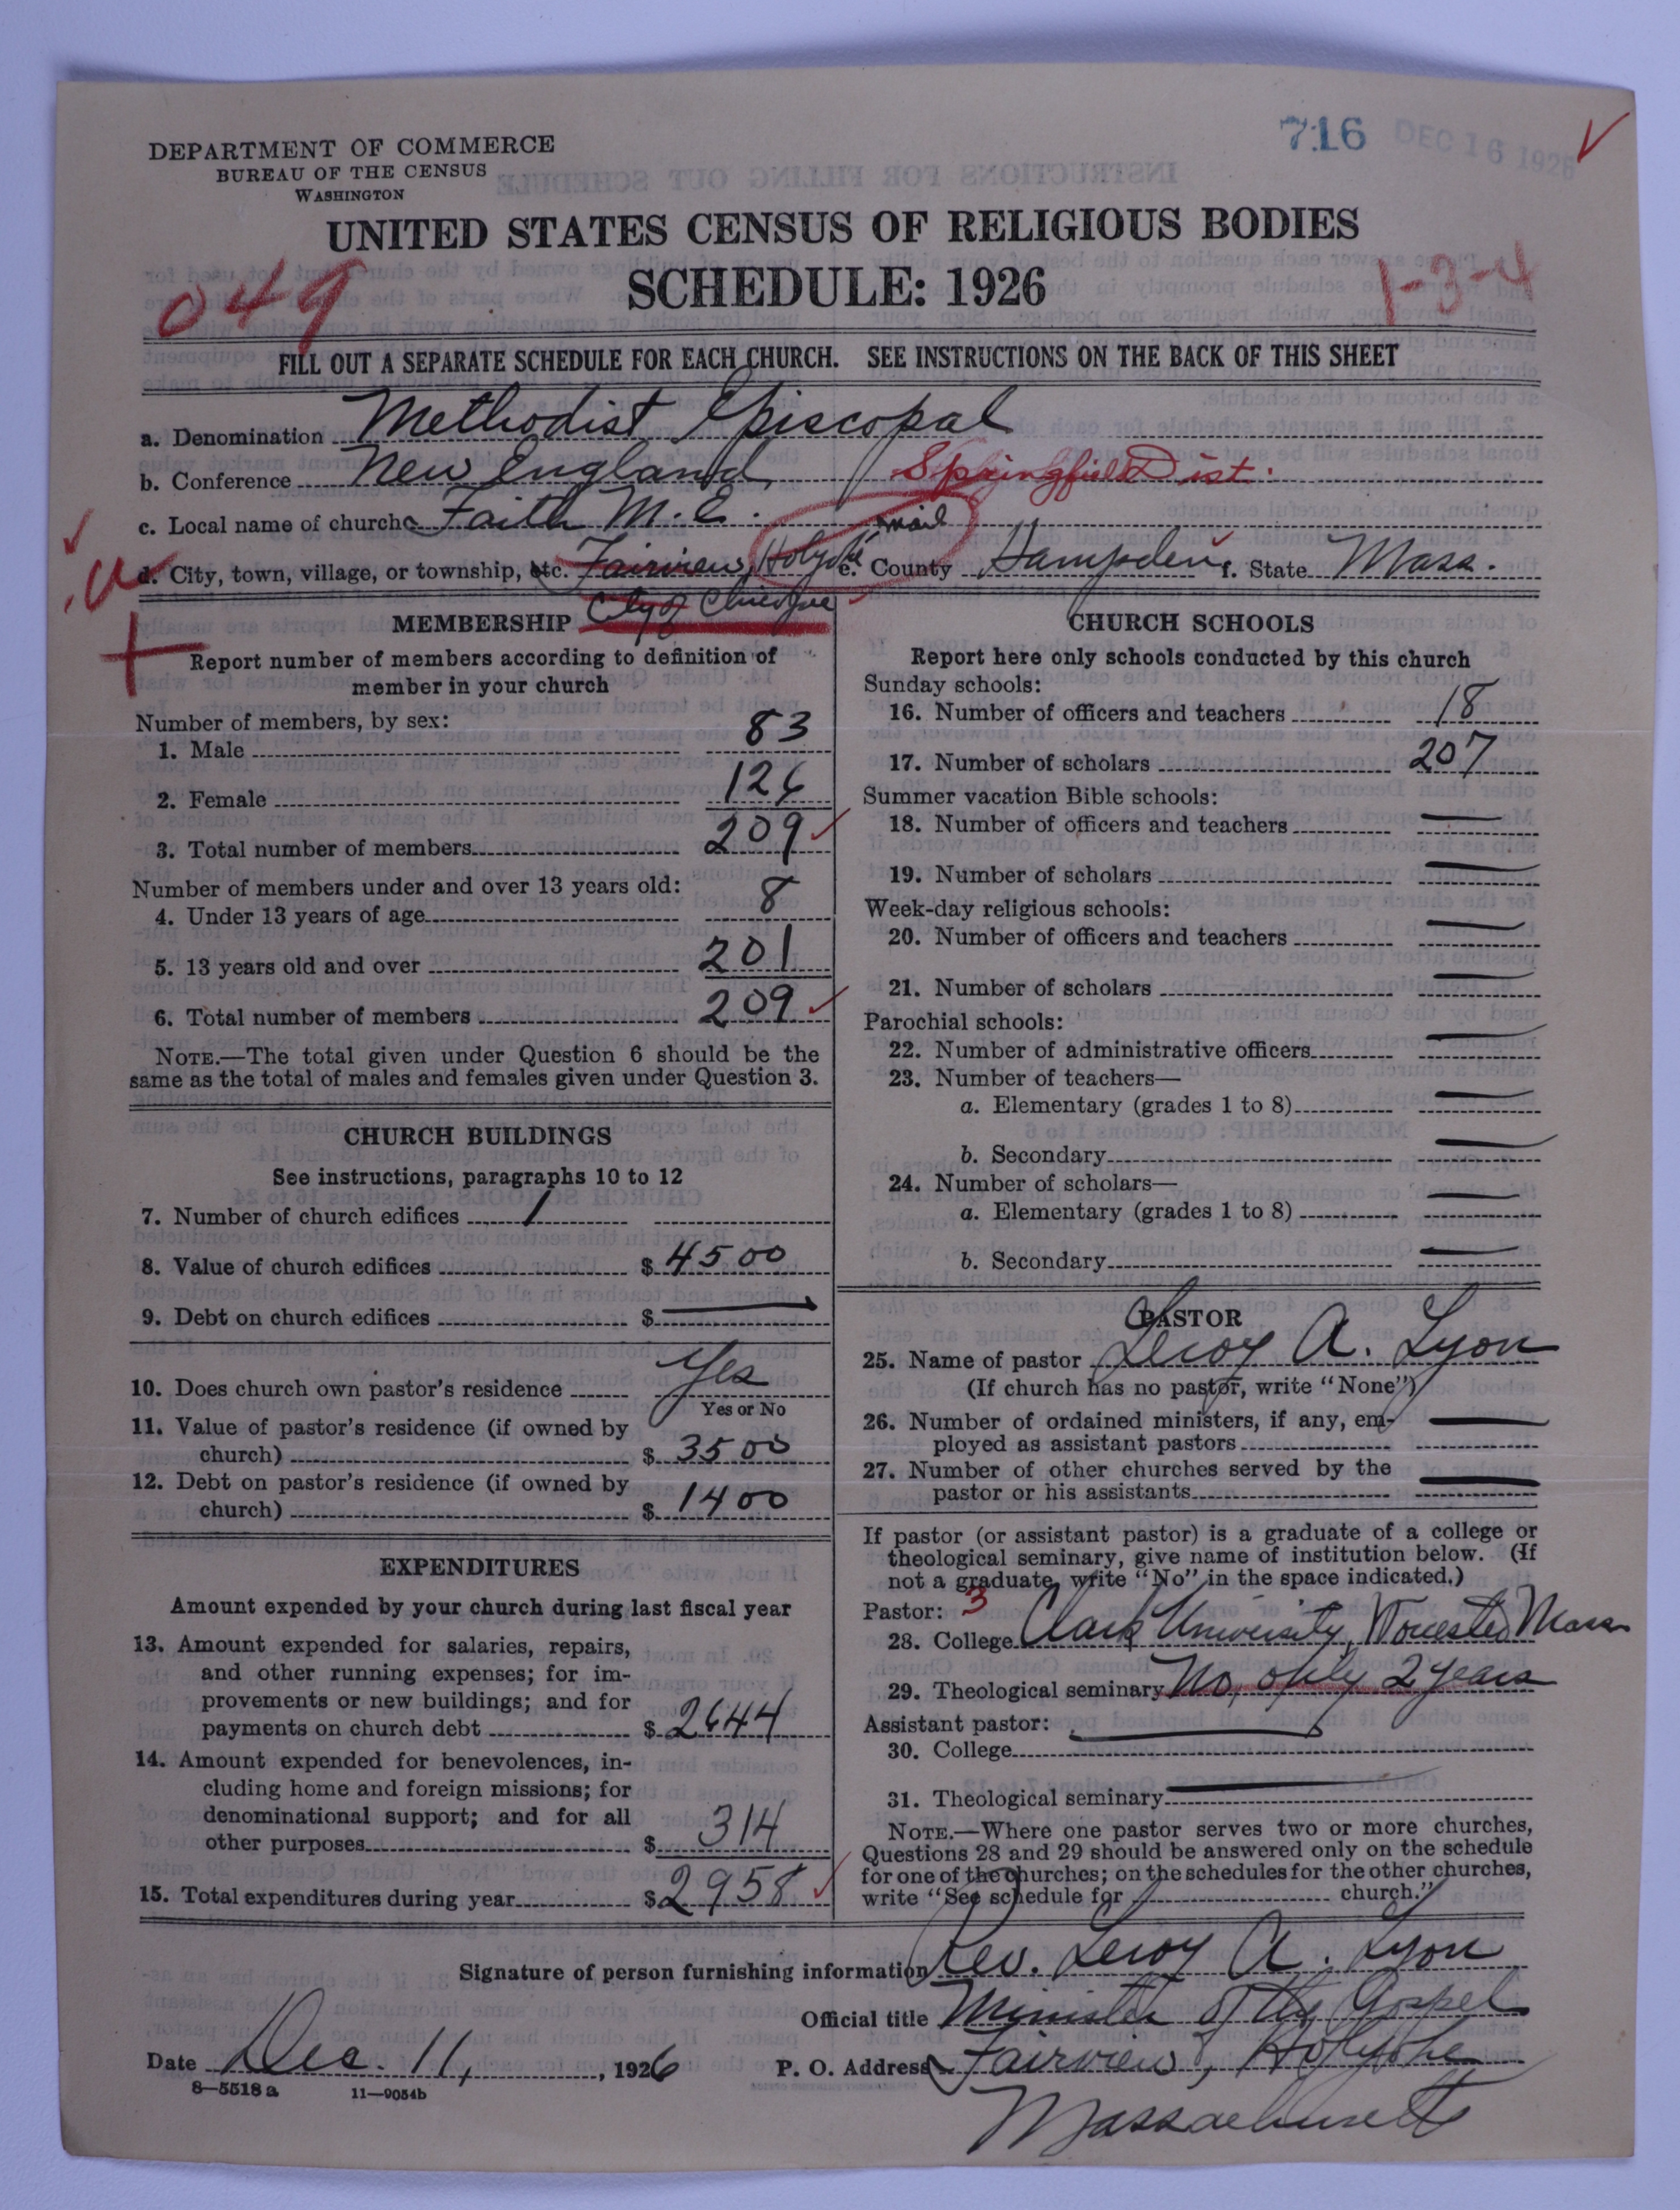 716 DEC 16 1926
DEPARTMENT OF COMMERCE
BUREAU OF THE CENSUS
WASHINGTON
UNITED STATES CENSUS OF RELIGIOUS BODIES
SCHEDULE: 1926
049
1-3-4
FILL OUT A SEPARATE SCHEDULE FOR EACH CHURCH. SEE INSTRUCTIONS ON THE BACK OF THIS SHEET
a. Denomination Methodist Episcopal
b. Conference New England Springfield Dist.
c. Local name of church Faith M.E.
mail
d. City, town, village, or township, etc. Fairview, Holyoke e. County Hampden f. State Mass.
City of Chicopee
MEMBERSHIP
Report number of members according to definition of
member in your church
Number of members, by sex:
1. Male 83
2. Female 126
3. Total number of members 209
Number of members under and over 13 years old:
4. Under 13 years of age 8
5. 13 years old and over 201
6. Total number of members 209
NOTE.—The total given under Question 6 should be the
same as the total of males and females given under Question 3.
CHURCH BUILDINGS
See instructions, paragraphs 10 to 12
7. Number of church edifices 1
8. Value of church edifices $ 4500
9. Debt on church edifices $ —
10. Does church own pastor's residence Yes
Yes or No
11. Value of pastor's residence (if owned by
church) $ 3500
12. Debt on pastor's residence (if owned by
church) $ 1400
EXPENDITURES
Amount expended by your church during last fiscal year
13. Amount expended for salaries, repairs,
and other running expenses; for im-
provements or new buildings; and for
payments on church debt $ 2644
14. Amount expended for benevolences, in-
cluding home and foreign missions; for
denominational support; and for all
other purposes $ 314
15. Total expenditures during year $ 2958
CHURCH SCHOOLS
Report here only schools conducted by this church
Sunday schools:
16. Number of officers and teachers 18
17. Number of scholars 207
Summer vacation Bible schools:
18. Number of officers and teachers —
19. Number of scholars —
Week-day religious schools:
20. Number of officers and teachers —
21. Number of scholars —
Parochial schools:
22. Number of administrative officers —
23. Number of teachers—
a. Elementary (grades 1 to 8) —
b. Secondary —
24. Number of scholars—
a. Elementary (grades 1 to 8) —
b. Secondary —
PASTOR
25. Name of pastor Leroy A. Lyon
(If church has no pastor, write "None")
26. Number of ordained ministers, if any, em-
ployed as assistant pastors —
27. Number of other churches served by the
pastor or his assistants —
If pastor (or assistant pastor) is a graduate of a college or
theological seminary, give name of institution below. (If
not a graduate, write "No" in the space indicated.)
Pastor: 3
28. College Clark University, Worcester Mass
29. Theological seminary No, only 2 years
Assistant pastor: —
30. College
31. Theological seminary —
NOTE.—Where one pastor serves two or more churches,
Questions 28 and 29 should be answered only on the schedule
for one of the churches; on the schedules for the other churches,
write "See schedule for church."
Signature of person furnishing information Rev. Leroy A. Lyon
Official title Minister of the Gospel
Date Dec. 11, 1926 P. O. Address Fairview, Holyoke
8—5518 a 11—9054b
Massachusetts